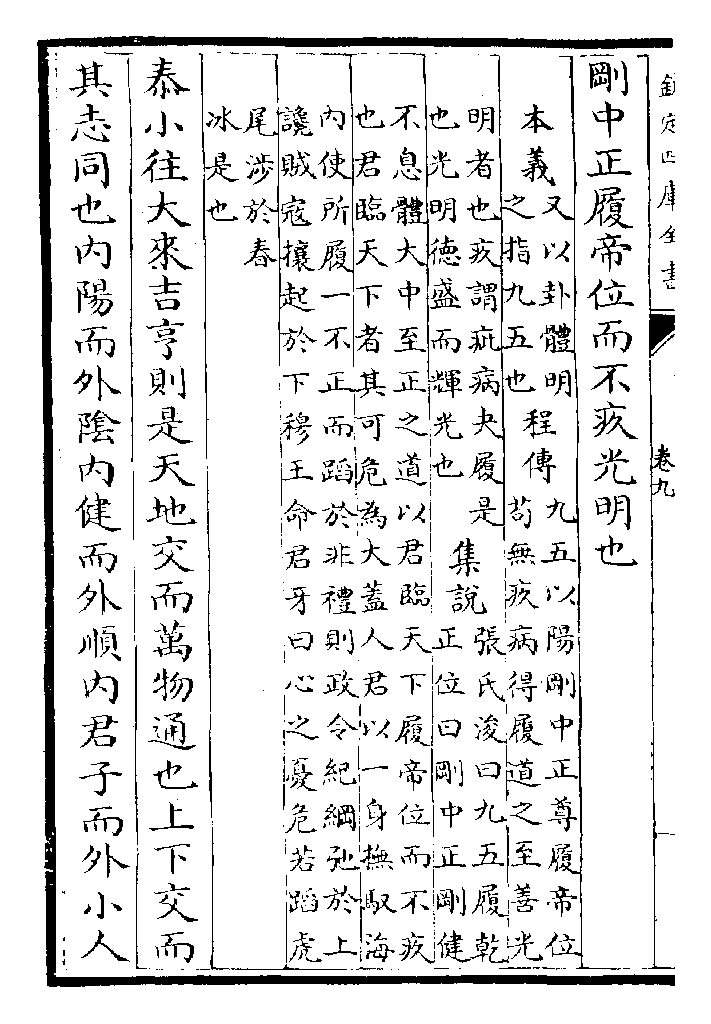 欽定四庫全書
卷九
剛中正履帝位而不疚光明也
本義
又以卦體明
之指九五也
程傳
九五以陽剛中正尊履帝位
苟無疚病得履道之至善光
明者也疚謂疵病夬履是
也光明德盛而輝光也
集說
張氏浚曰九五履乾
正位曰剛中正剛健
不息體大中至正之道以君臨天下履帝位而不疚
也君臨天下者其可危為大蓋人君以一身撫馭海
內使所履一不正而蹈於非禮則政令紀綱弛於上
讒賊寇攘起於下穆王命君牙曰心之憂危若蹈虎
尾涉於春
冰是也
泰小往大來吉亨則是天地交而萬物通也上下交而
其志同也內陽而外陰內健而外順內君子而外小人